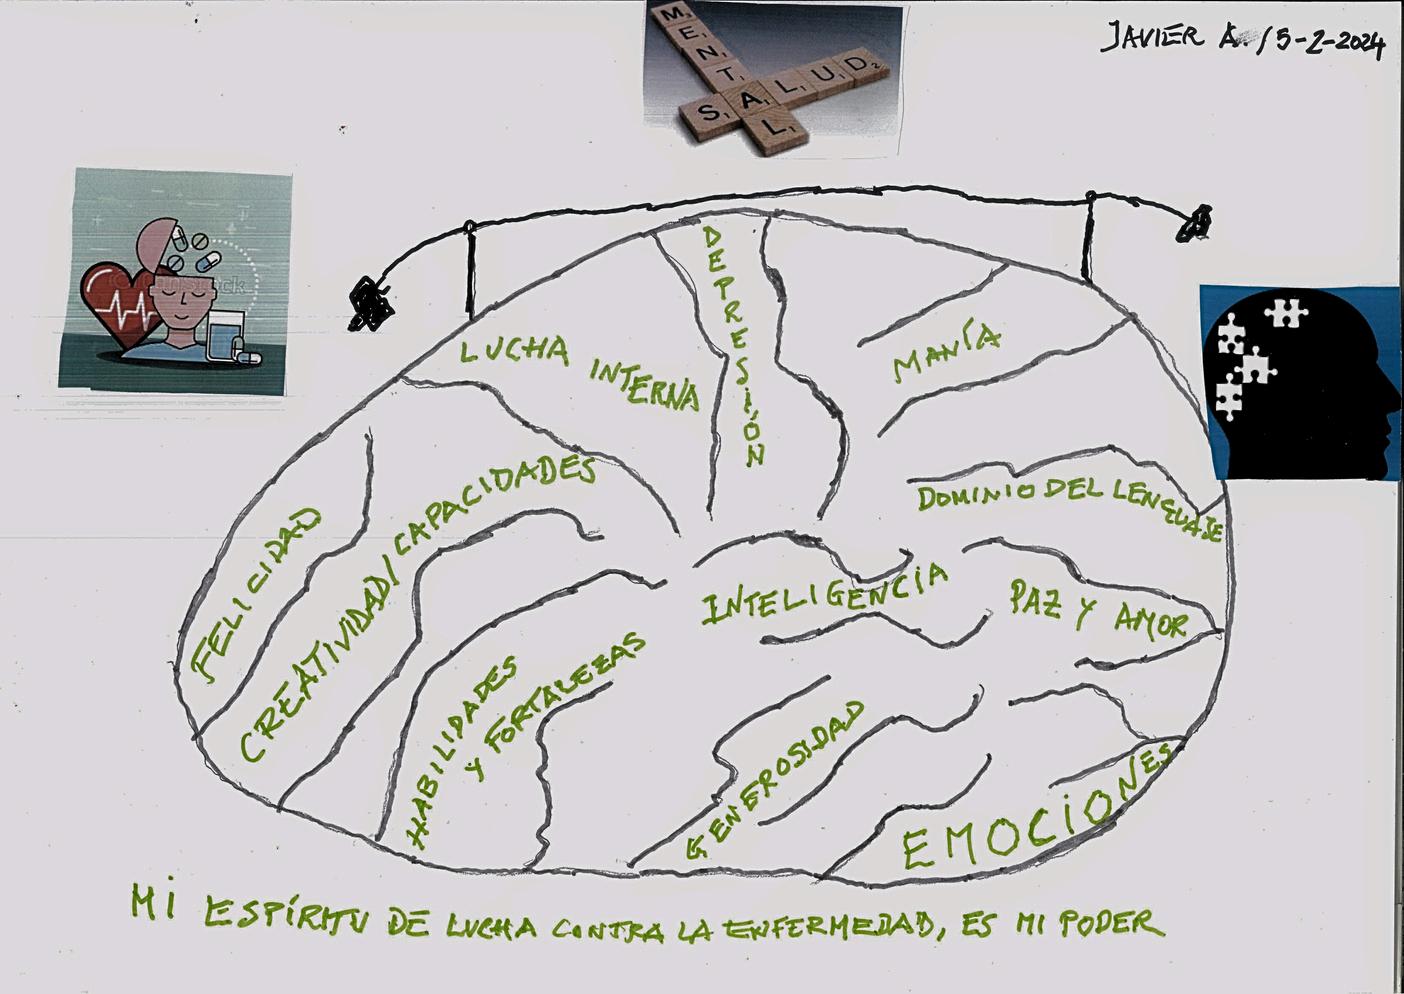 JAVIER A. / 5-2-2024
MENTAL
SALUD
DEPRESIÓN
LUCHA INTERNA
MANÍA
FELICIDAD
CREATIVIDAD/CAPACIDADES
DOMINIO DEL LENGUAJE
INTELIGENCIA
PAZ Y AMOR
HABILIDADES
Y FORTALEZAS
GENEROSIDAD
EMOCIONES
MI ESPÍRITU DE LUCHA CONTRA LA ENFERMEDAD, ES MI PODER